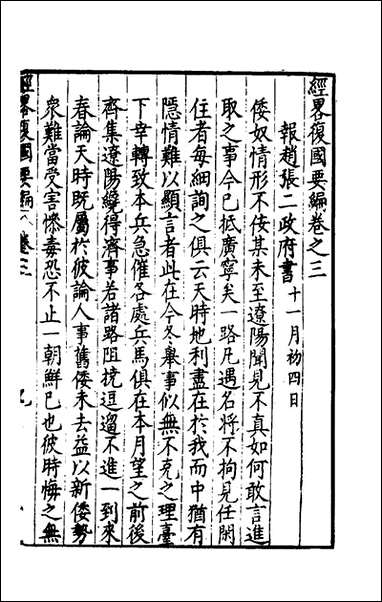 經畧復國要編卷之三
報趙張二政府書十一月初四日
倭奴情形不佞某未至遼陽聞見不真如何敢言進
取之事今已抵廣寧矣一路凡遇名將不拘見任閑
住者每細詢之俱云天時地利盡在於我而中猶有
隱情難以顯言者此在今冬舉事似無不克之理臺
下幸轉致本兵急催各處兵馬俱在本月望之前後
齊集遼陽纔得濟事若諸路阻撓逗遛不進一到來
春論天時既屬於彼論人事舊倭未去益以新倭勢
衆難當受害慘毒恐不止一朝鮮已也彼時悔之無
經畧復國要編 卷三